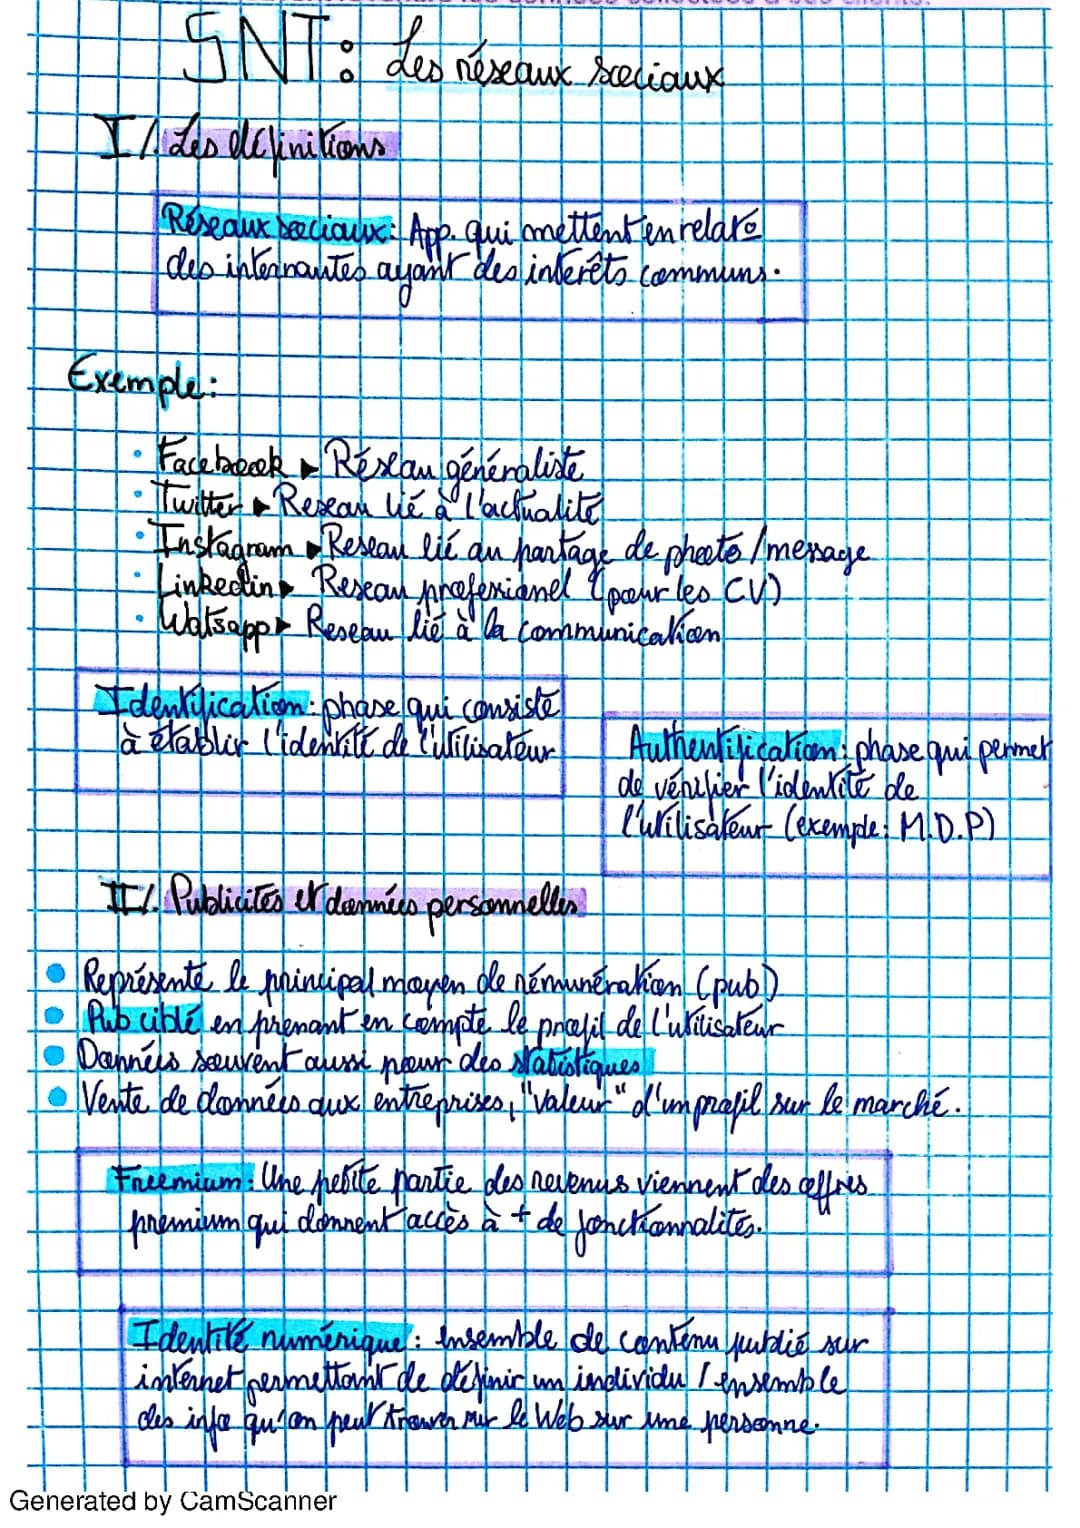 SNT: Les réseaux sociaux
I/. Les définitions
Réseaux sociaux: App. qui mettent en relat°
des internautes ayant des interêts communs.
Exemple:
• Facebook ▶ Réseau généraliste
• Twitter ▶ Reseau lié à l'actualité
• Instagram ▶ Reseau lié au partage de photo/message
• Linkedin ▶ Reseau profesionel (pour les CV)
• Watsapp ▶ Reseau lié à la communication
Identification: phase qui consiste
à établir l'identité de l'utilisateur
Authentification: phase qui permet
de vérifier l'identité de
l'utilisateur (exemple: M.D.P)
II/. Publicités et données personnelles
• Représente le principal moyen de rémunération (pub)
• Pub ciblé en prenant en compte le profil de l'utilisateur
• Données souvent aussi pour des statistiques
• Vente de données aux entreprises, "valeur" d'un profil sur le marché.
Freemium: Une petite partie des revenus viennent des offres
premium qui donnent accès à + de fonctionnalités.
Identité numérique: ensemble de contenu publié sur
internet permettant de définir un individu / ensemble
des info qu'on peut trouver sur le Web sur une personne.
Generated by CamScanner